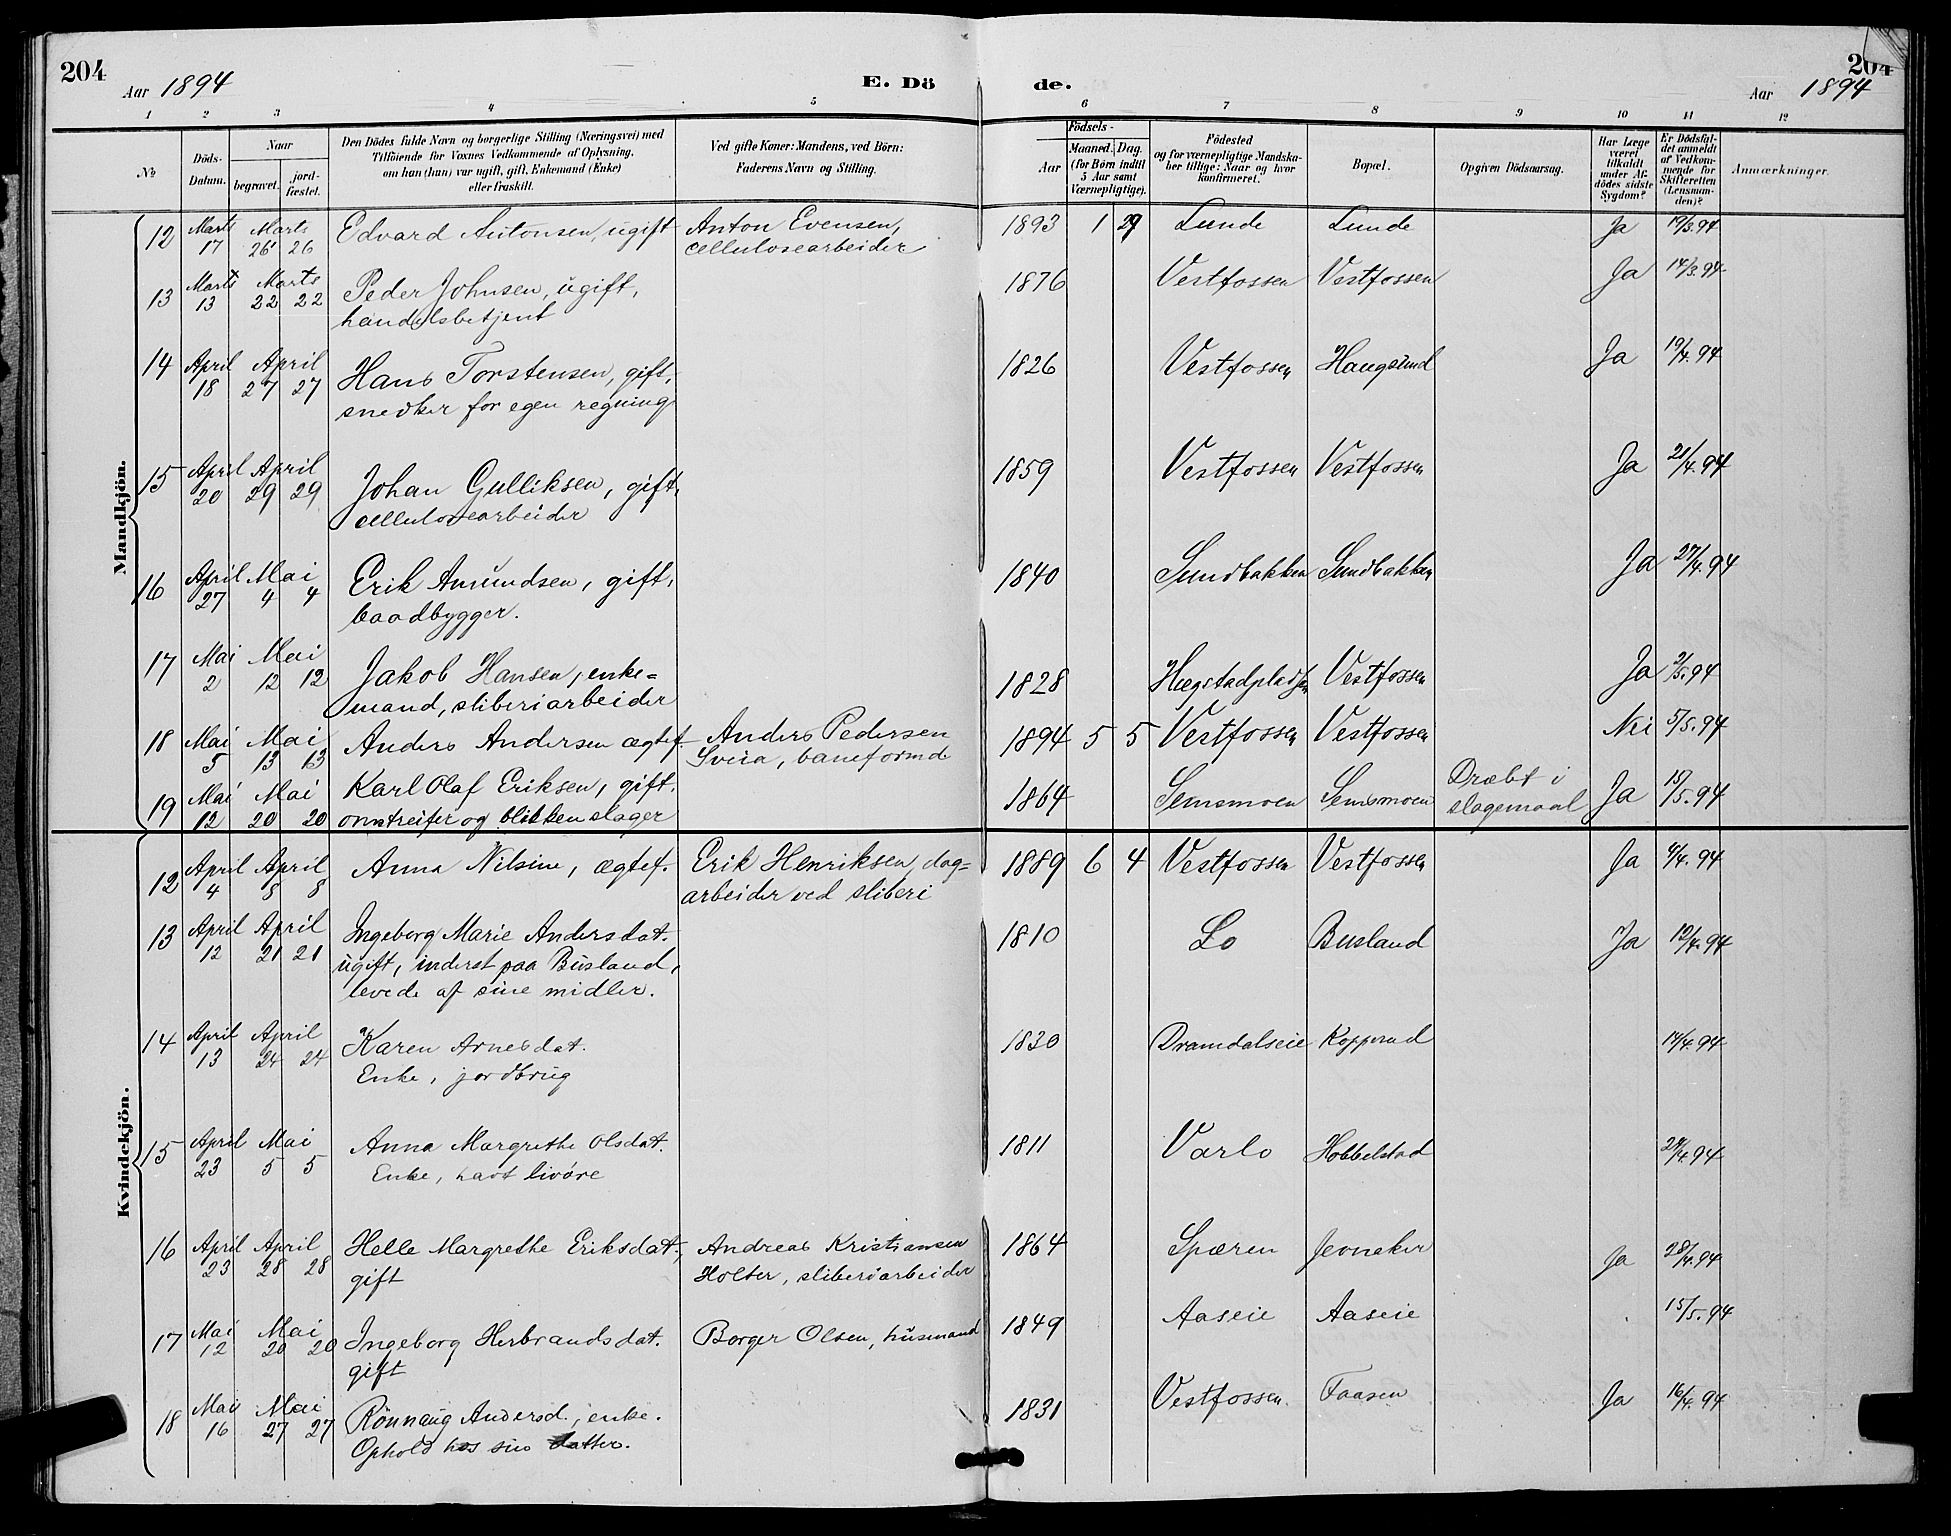 204
Aar 1894
E. Dö de.
Aar 1894
204
1 2 3 4 5 6 7 8 9 10 11 12
No
Döds-
Datum.
Naar
begravet.
jord-
fæstet.
Den Dödes fulde Navn og borgerlige Stilling (Næringsvei) med
Tilföiende for Voxnes Vedkommende af Oplysning,
om han (hun) var ugift, gift, Enkemand (Enke)
eller fraskilt.
Ved gifte Koner: Mandens, ved Börn:
Faderens Navn og Stilling.
Födsels-
Aar
Maaned. Dag.
(for Börn indtil
5 Aar samt
Værnepligtige).
Födested
og for værnepligtige Mandska-
ber tillige: Naar og hvor
konfirmeret.
Bopæl.
Opgiven Dödsaarsag.
Har Læge
været
tilkaldt
under Af-
dödes sidste
Sygdom?
Er Dödsfal-
det anmeldt
af Vedkom-
mende for
Skifteretten
(Lensman-
den)?
Anmærkninger.
Mandkjön.
12 Marts 17 Marts 26 26 Edvard Antonsen, ugift Anton Evensen, 1893 1 29 Lunde Lunde Ja 19/3.94
cellulosearbeider
13 Marts 13 Marts 22 22 Peder Johnsen, ugift, 1876 Vestfossen Vestfossen Ja 14/3.94
handelsbetjent
14 April 18 April 27 27 Hans Torstensen, gift, 1826 Vestfossen Haugsund Ja 19/4.94
snedker for egen regning
15 April 20 April 29 29 Johan Gulliksen, gift, 1859 Vestfossen Vestfossen Ja 21/4.94
cellulosearbeider
16 April 27 Mai 4 4 Erik Amundsen, gift, 1840 Sundbakken Sundbakken Ja 27/4.94
baadbygger.
17 Mai 2 Mai 12 12 Jakob Hansen, enke= 1828 Hægstadpladsen Vestfossen Ja 2/5.94
mand, sliberiarbeider
18 Mai 5 Mai 13 13 Anders Andersen ægtef. Anders Pedersen 1894 5 5 Vestfossen Vestfossen Nei 5/5.94
Sveia, baneformd
19 Mai 12 Mai 20 20 Karl Olaf Eriksen, gift, 1864 Semsmoen Semsmoen Dræbt i Ja 15/5.94
omstreifer og blikkenslager slagsmaal
Kvindekjön.
12 April 4 April 8 8 Anna Nilsine, ægtef. Erik Henriksen, dag= 1889 6 4 Vestfossen Vestfossen Ja 4/4.94
arbeider ved sliberi
13 April 12 April 21 21 Ingeborg Marie Andersdat. 1810 Lo Busland Ja 12/4.94
ugift, inderst paa Busland,
levede af sine midler.
14 April 13 April 24 24 Karen Arnesdat. 1830 Dramdalseie Kopperud 14/4.94
Enke, jordbrug
15 April 23 Mai 5 5 Anna Margrethe Olsdat. 1811 Varlo Hobbelstad 24/4.94
Enke, havt livøre
16 April 23 April 28 28 Helle Margrethe Eriksdat., Andreas Kristiansen 1864 Spæren Jevneker Ja 28/4.94
gift Holter, sliberiarbeider
17 Mai 12 Mai 20 20 Ingeborg Herbrandsdat. Borger Olsen, husmand 1849 Aaseie Aaseie 15/5.94
gift
18 Mai 16 Mai 27 27 Rönnaug Andersd., enke. 1831 Vestfossen Faasen Ja 16/4.94
Ophold hos sin datter.